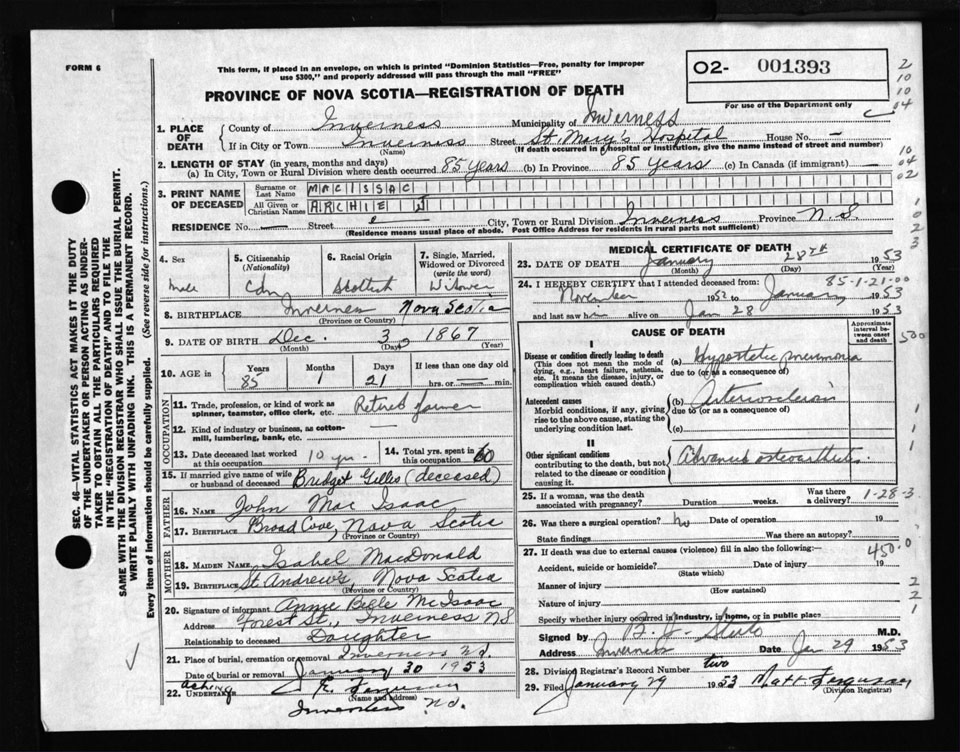 FORM 6
This form, if placed in an envelope, on which is printed "Dominion Statistics—Free, penalty for improper
use $300," and properly addressed will pass through the mail "FREE"
O2- 001393
For use of the Department only
PROVINCE OF NOVA SCOTIA—REGISTRATION OF DEATH
2
10
10
04
1. PLACE OF DEATH
County of Inverness Municipality of Inverness
If in City or Town Inverness (Name) Street St. Mary's Hospital House No. —
(If death occurred in hospital or institution, give the name instead of street and number)
2. LENGTH OF STAY (in years, months and days)
(a) In City, Town or Rural Division where death occurred 85 years (b) In Province 85 years (c) In Canada (if immigrant) —
10
04
02
3. PRINT NAME OF DECEASED
Surname or Last Name MACISSAC
All Given or Christian Names ARCHIE J
RESIDENCE No. — Street City, Town or Rural Division Inverness Province N.S.
(Residence means usual place of abode. Post Office Address for residents in rural parts not sufficient)
1
0
2
3
4. Sex
male
5. Citizenship (Nationality)
Cdn
6. Racial Origin
Scottish
7. Single, Married, Widowed or Divorced (write the word)
Widower
8. BIRTHPLACE Inverness Nova Scotia
(Province or Country)
9. DATE OF BIRTH Dec. 3, 1867
(Month) (Day) (Year)
10. AGE in
Years 85
Months 1
Days 21
If less than one day old
hrs. or min.
OCCUPATION
11. Trade, profession, or kind of work as spinner, teamster, office clerk, etc. Retired farmer
12. Kind of industry or business, as cotton-mill, lumbering, bank, etc.
13. Date deceased last worked at this occupation 10 yrs.
14. Total yrs. spent in this occupation 60
15. If married give name of wife or husband of deceased Bridget Gillis (deceased)
FATHER
16. Name John Mac Isaac
17. Birthplace Broad Cove, Nova Scotia
(Province or Country)
MOTHER
18. Maiden Name Isabel MacDonald
19. Birthplace St. Andrew's, Nova Scotia
(Province or Country)
20. Signature of informant Annie Belle McIsaac
Address Forest St., Inverness N.S
Relationship to deceased Daughter
21. Place of burial, cremation or removal Inverness N.S.
Date of burial or removal January 30 1953
22. Acting UNDERTAKER
(Name and address)
Inverness N.S.
MEDICAL CERTIFICATE OF DEATH
23. DATE OF DEATH January 28th 1953
(Month) (Day) (Year)
24. I HEREBY CERTIFY that I attended deceased from: 85-1-21-00
November 1952 to January 1953
and last saw him alive on Jan 28 1953
CAUSE OF DEATH
Approximate interval between onset and death
500
I
Disease or condition directly leading to death
(This does not mean the mode of dying, e.g., heart failure, asthenia, etc. It means the disease, injury, or complication which caused death.)
(a) Hypostatic pneumonia
due to (or as a consequence of)
Antecedent causes
Morbid conditions, if any, giving rise to the above cause, stating the underlying condition last.
(b) Arteriosclerosis
due to (or as a consequence of)
(c)
II
Other significant conditions
contributing to the death, but not related to the disease or condition causing it.
Advanced osteoarthritis
1
1
1
25. If a woman, was the death associated with pregnancy? Duration weeks. Was there delivery? 1-28-3
26. Was there a surgical operation? No Date of operation 19
State findings Was there an autopsy?
27. If death was due to external causes (violence) fill in also the following:— 450.0
Accident, suicide or homicide? Date of injury 19
(State which)
Manner of injury
(How sustained)
Nature of injury
Specify whether injury occurred in industry, in home, or in public place
2
2
1
Signed by M.D.
Address Inverness Date Jan 29 1953
28. Division Registrar's Record Number two
29. Filed January 29 1953 Matt Ferguson
(Division Registrar)
SEC. 46—VITAL STATISTICS ACT MAKES IT THE DUTY
OF THE UNDERTAKER OR PERSON ACTING AS UNDER-
TAKER TO OBTAIN ALL THE PARTICULARS REQUIRED
IN THE "REGISTRATION OF DEATH" AND TO FILE THE
SAME WITH THE DIVISION REGISTRAR WHO SHALL ISSUE THE BURIAL PERMIT.
WRITE PLAINLY WITH UNFADING INK. THIS IS A PERMANENT RECORD.
Every item of information should be carefully supplied. (See reverse side for instructions.)